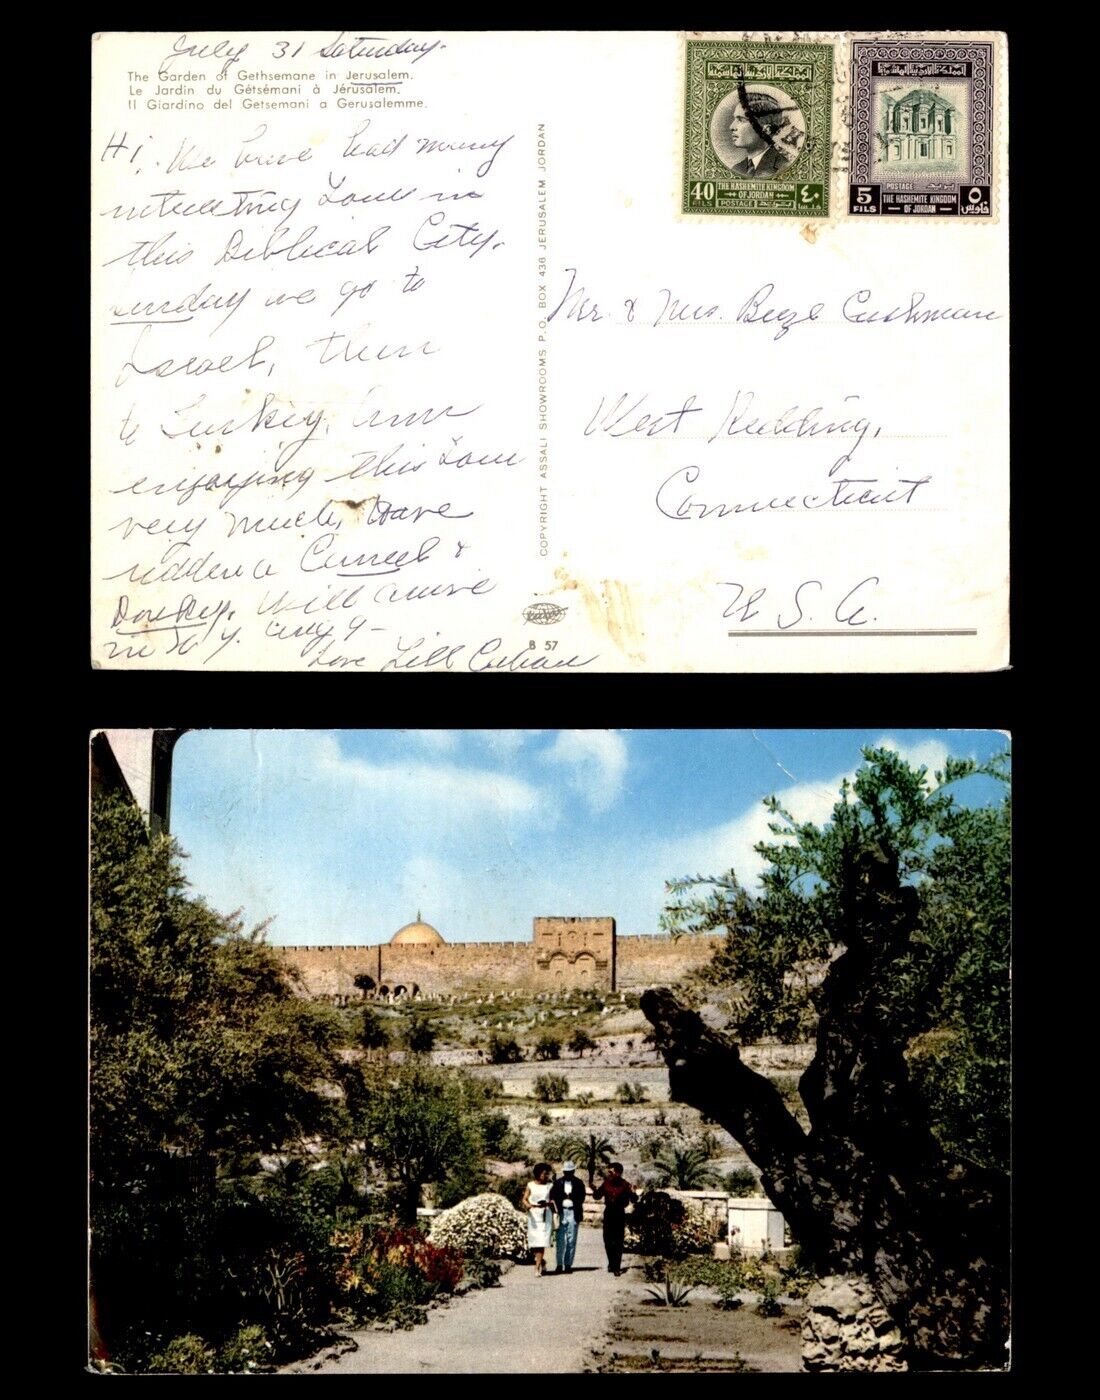 July 31 Saturday.
The Garden of Gethsemane in Jerusalem.
Le Jardin du Gétsémani à Jérusalem.
Il Giardino del Getsemani a Gerusalemme.
Hi! We have had many
interesting Tours in
this Biblical City.
Sunday we go to
Israel, then
to Turkey. Am
enjoying this Tour
very much, Have
ridden a Camel &
Donkey. Will arrive
in N.Y. Aug 9 -
Love Lill
B 57
COPYRIGHT ASSALI SHOWROOMS P.O. BOX 436 JERUSALEM JORDAN
المملكة الاردنية الهاشمية
40
FILS
THE HASHEMITE KINGDOM
OF JORDAN
POSTAGE
٤٠
المملكة الاردنية الهاشمية
POSTAGE
5
FILS
THE HASHEMITE KINGDOM
OF JORDAN
٥
Mr. & Mrs. Cushman
West Redding,
Connecticut
U. S. A.